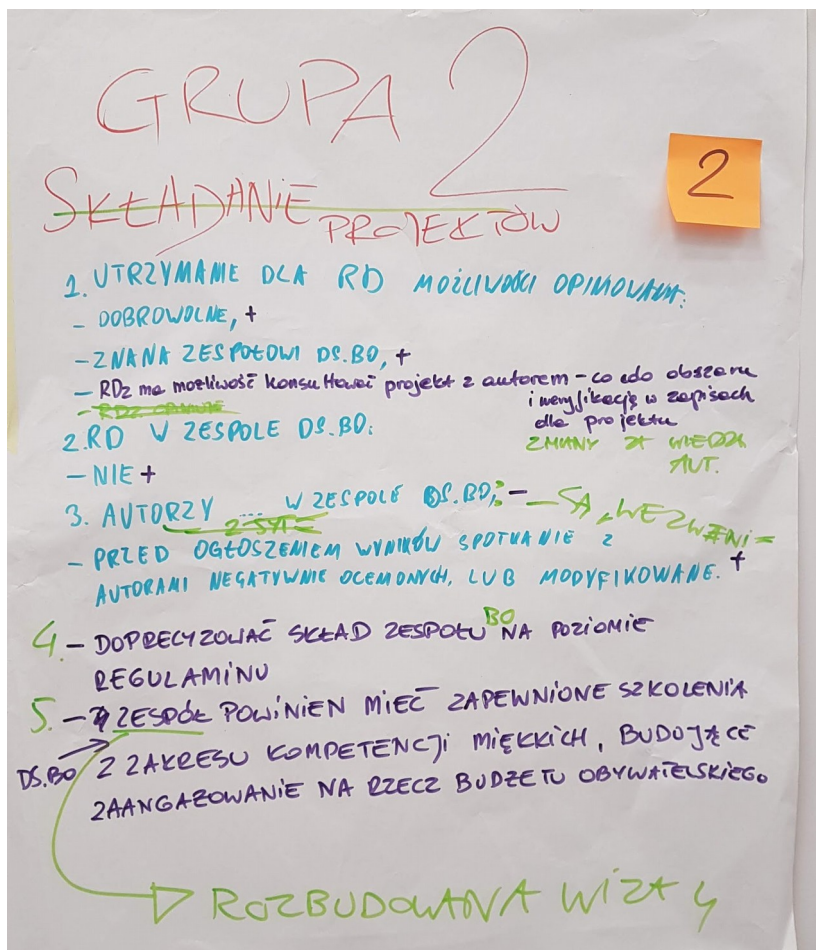 GRUPA 2
2
SKŁADANIE PROJEKTÓW
1. UTRZYMANIE DLA RD MOŻLIWOŚCI OPINIOWANIA:
- DOBROWOLNE, +
- ZNANA ZESPOŁOWI DS.BO, +
- RDz ma możliwość konsultować projekt z autorem - co do obszaru
i weryfikację w zapisach
dla projektu
ZMIANY ZA WIEDZĄ
AUT.
2. RD W ZESPOLE DS.BO:
- NIE +
3. AUTORZY ... W ZESPOLE DS.BO; -
- PRZED OGŁOSZENIEM WYNIKÓW SPOTKANIE Z
AUTORAMI NEGATYWNIE OCENIONYCH, LUB MODYFIKOWANE. +
4. - DOPRECYZOWAĆ SKŁAD ZESPOŁU BO NA POZIOMIE
REGULAMINU
5. - ZESPÓŁ POWINIEN MIEĆ ZAPEWNIONE SZKOLENIA
DS.BO Z ZAKRESU KOMPETENCJI MIĘKKICH, BUDUJĄCE
ZAANGAŻOWANIE NA RZECZ BUDŻETU OBYWATELSKIEGO
ROZBUDOWANA